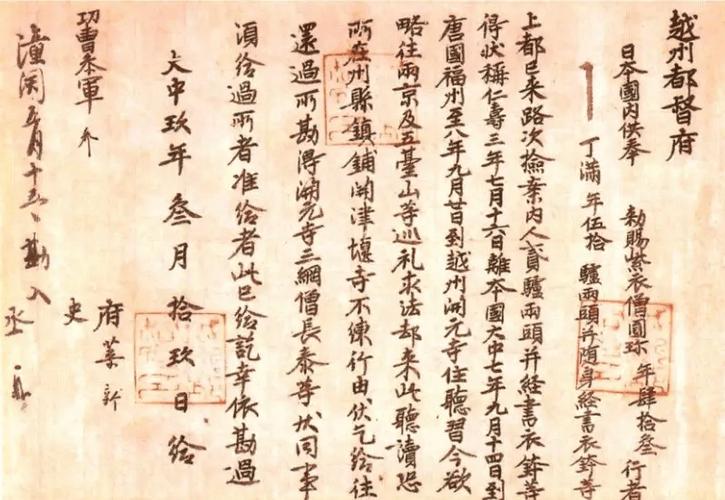 越州都督府
日本國內供奉 勅賜紫衣僧圓珍 年肆拾叁 行者
丁滿 年伍拾 驢兩頭并随身経書衣鉢等
上都已來路次撿案內人貳驢兩頭并経書衣鉢等
得狀稱仁壽三年七月十六日離本國大中七年九月十四日到
唐國福州至八年九月廿日到越州開元寺住聽習今欲
略往兩京及五臺山等巡礼求法却来此聽讀恐
所在州縣鎮鋪關津堰寺不練行由伏乞給往
還過所勘得開元寺三綱僧長泰等狀同事
須給過所者准給者此已給訖幸依勘過
大中玖年叁月拾玖日給
府葉新
功曹叅軍
史
潼關五月十五日勘入
丞